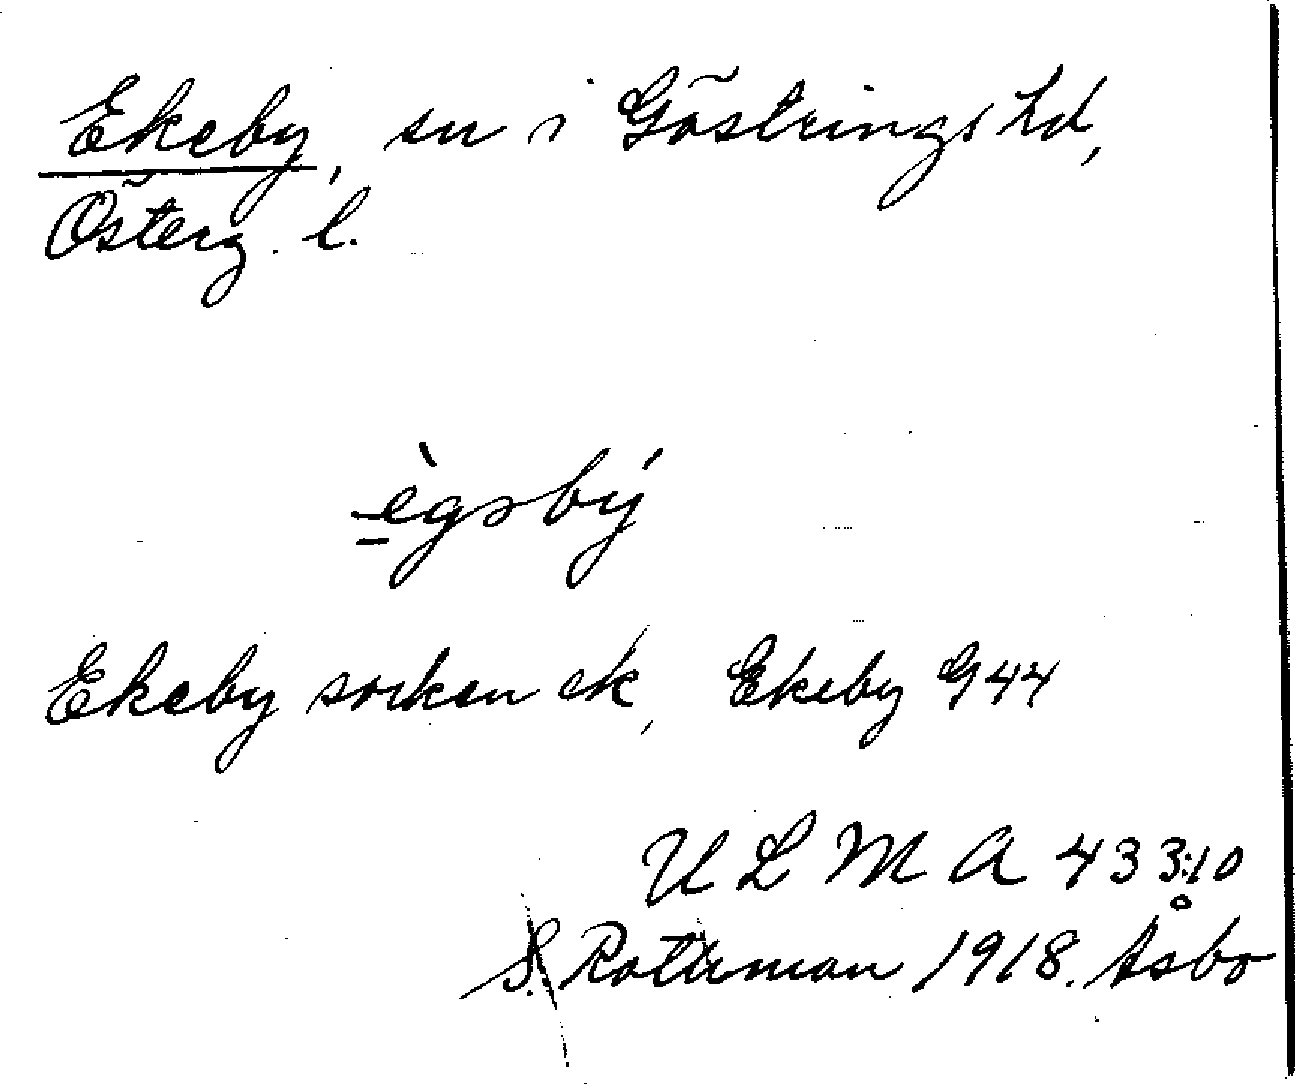 Ekeby, sn i Göstrings hd,
Österg. l.
ègsbý
Ekeby socken ek, Ekeby G44
ULMA 433:10
S. Rothman 1918. Åsbo